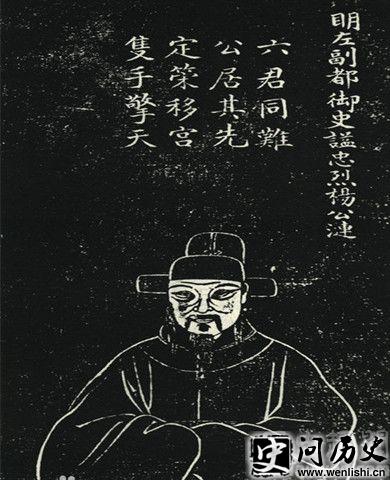 明左副都御史謚忠烈楊公漣
六君同難
公居其先
定策移宮
隻手擎天
史问历史
www.wenlishi.cn